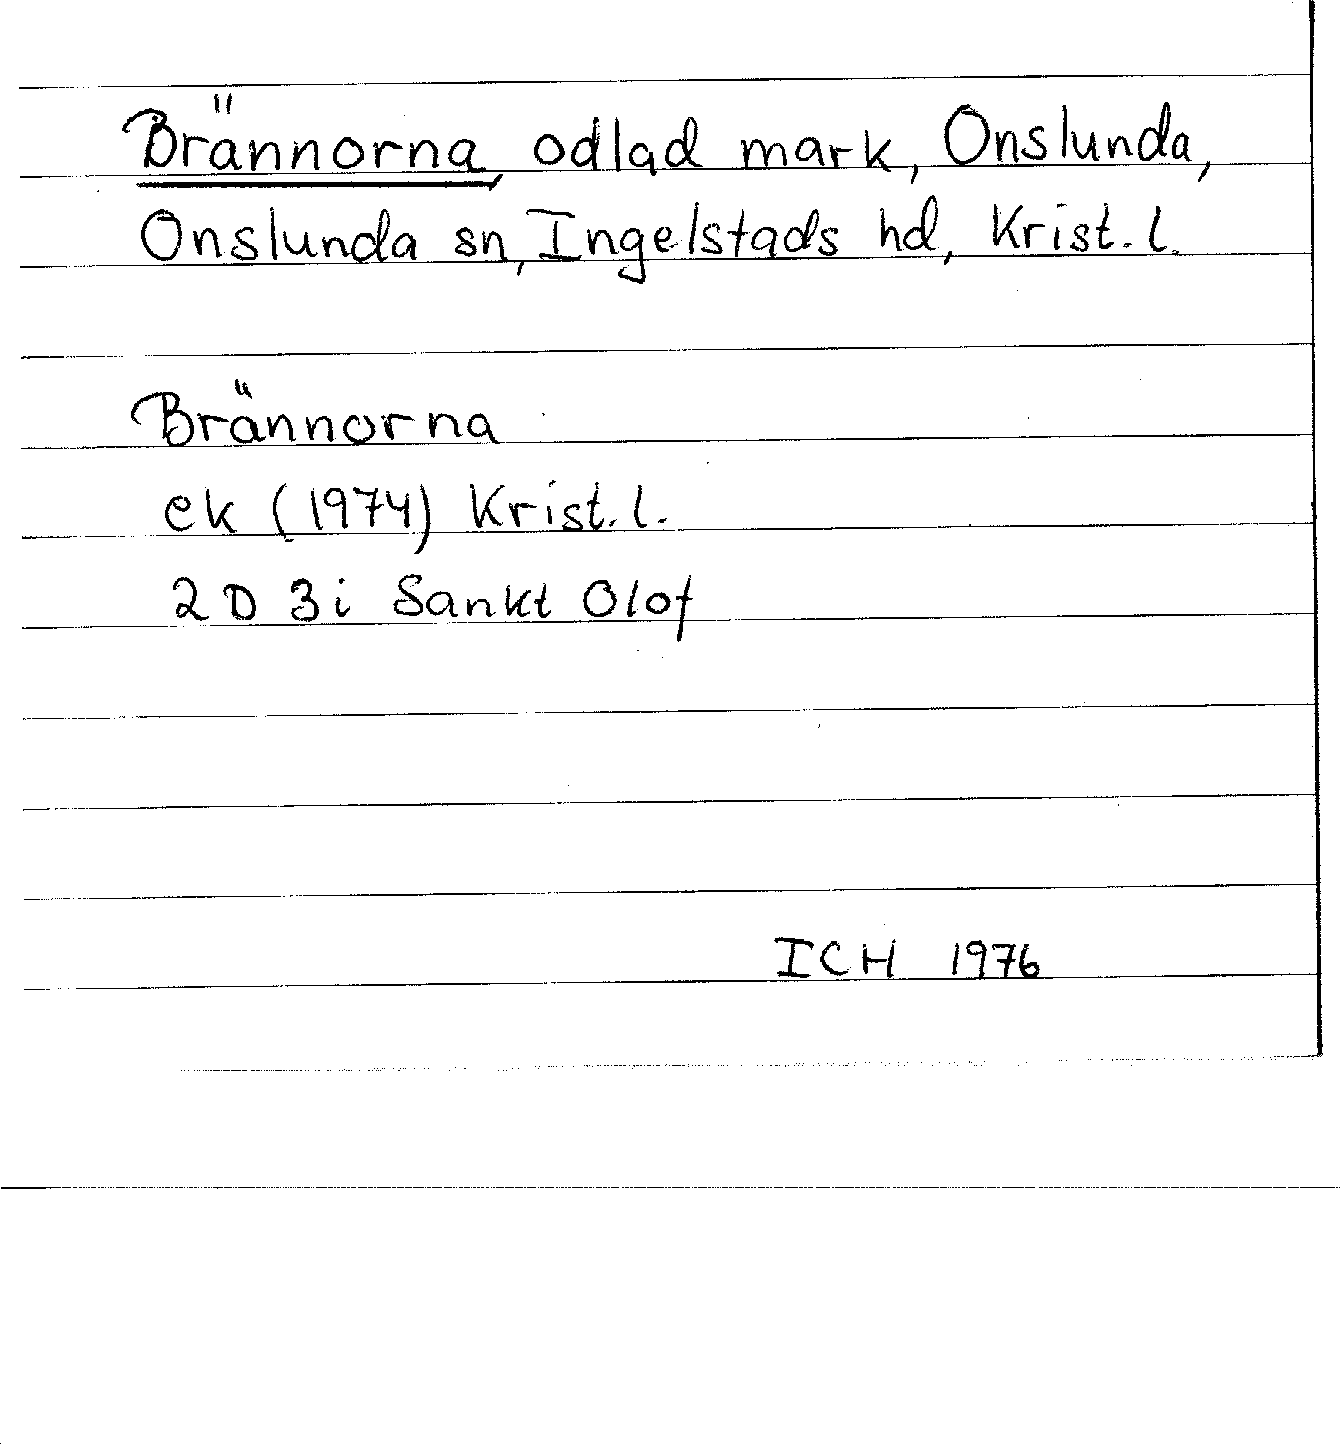 Brännorna, odlad mark, Onslunda,
Onslunda sn, Ingelstads hd, Krist. l.
Brännorna
ek (1974) Krist. l.
2 D 3 i Sankt Olof
ICH 1976